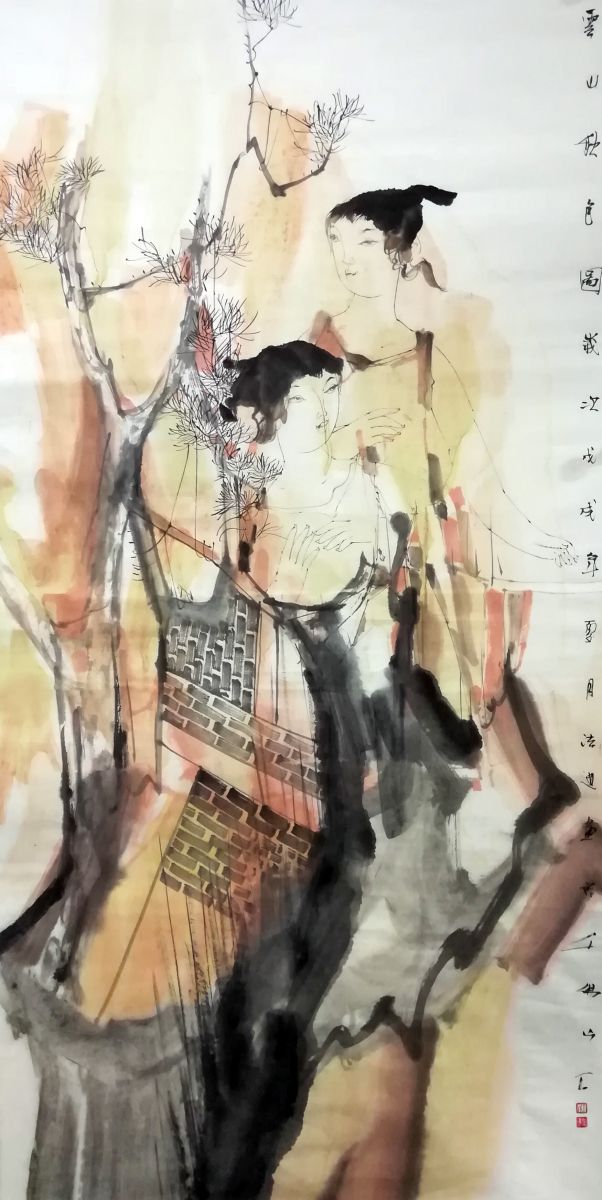 雲山秋色圖歲次戊戌年夏月浩進畫於千佛山下